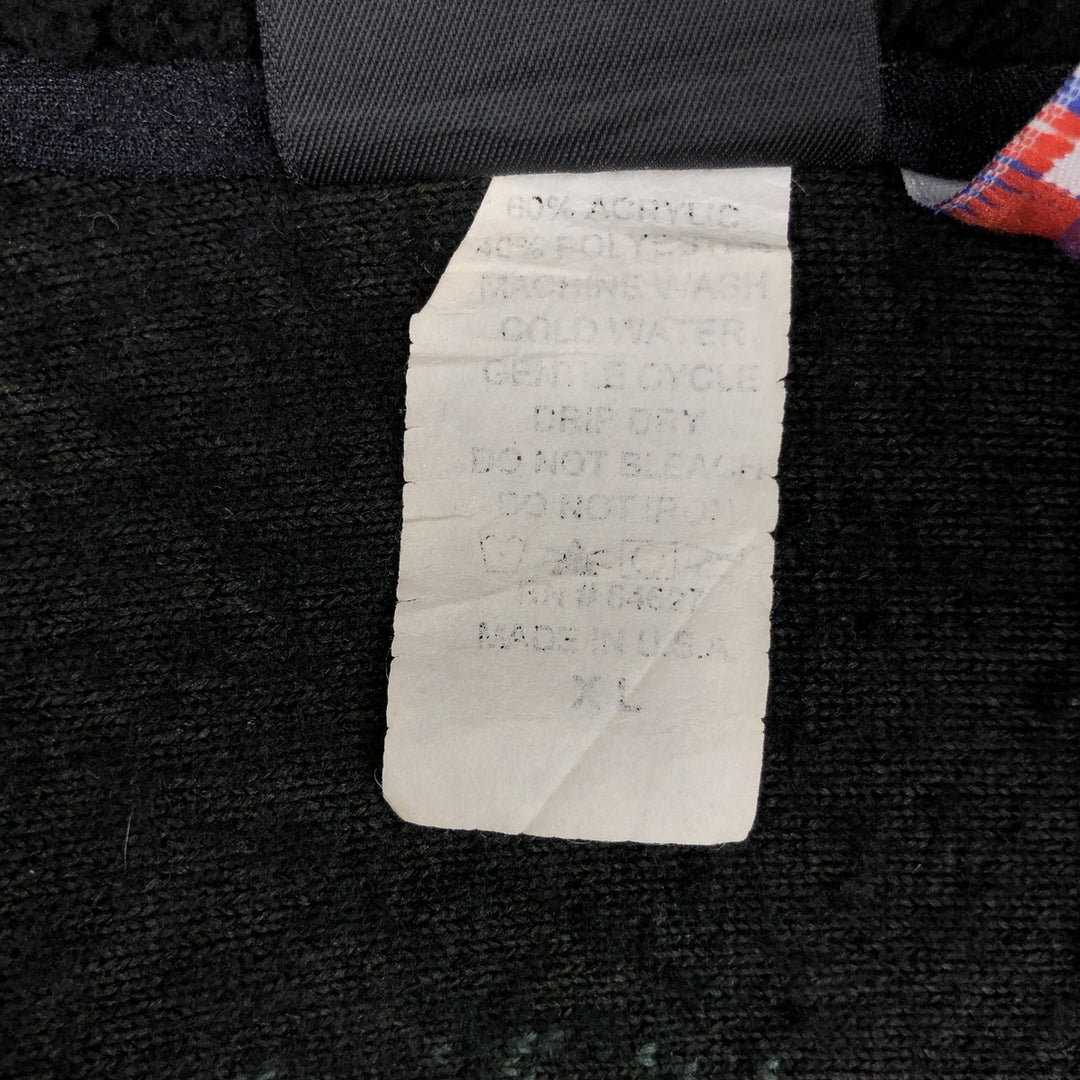 60% ACRYLIC
40% POLYESTER
MACHINE WASH
COLD WATER
GENTLE CYCLE
DRIP DRY
DO NOT BLEACH
DO NOT IRON
RN #
MADE IN U.S.A.
XL